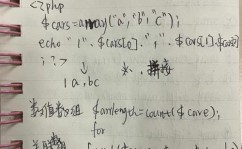 <?php
$cars=array("a","b","c");
echo "1".$cars[0].",".$cars[1].$cars[2]
;?>
↓
1a,bc
数值数组 $arrlength=count($care);
for